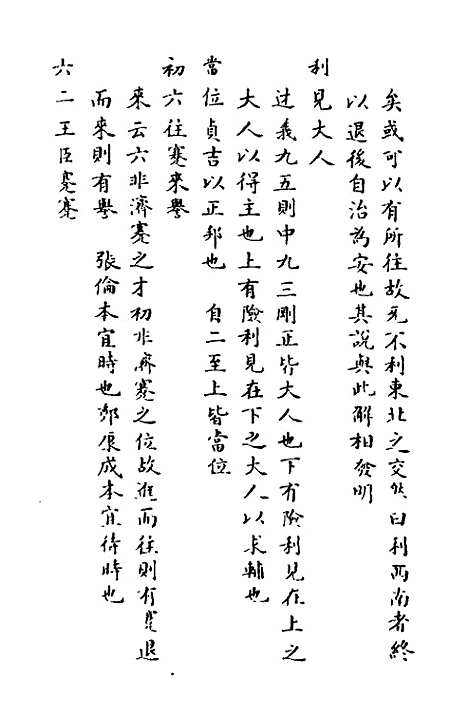 矣或可以有所往故无不利東北之文然曰利西南者終
以退後自治為安也其說與此解相發明
利見大人
过義九五則中九三剛正皆大人也下有險利見在上之
大人以得主也上有險利見在下之大人以求輔也
當位貞吉以正邦也　自二至上皆當位
初六往蹇來譽
來云六非濟蹇之才初非濟蹇之位故進而往則有蹇退
而來則有譽　張倫本宜時也鄭康成本宜待時也
六二王臣蹇蹇